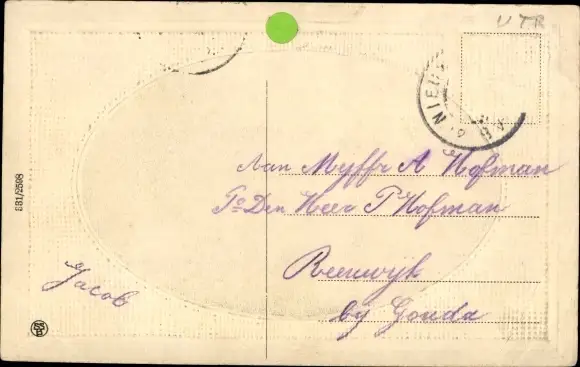 UTR
NIEU
Aan Mejffr A Hofman
Pr Den Heer P Hofman
Reeuwijk
by Gouda
Jacob
E31/2598